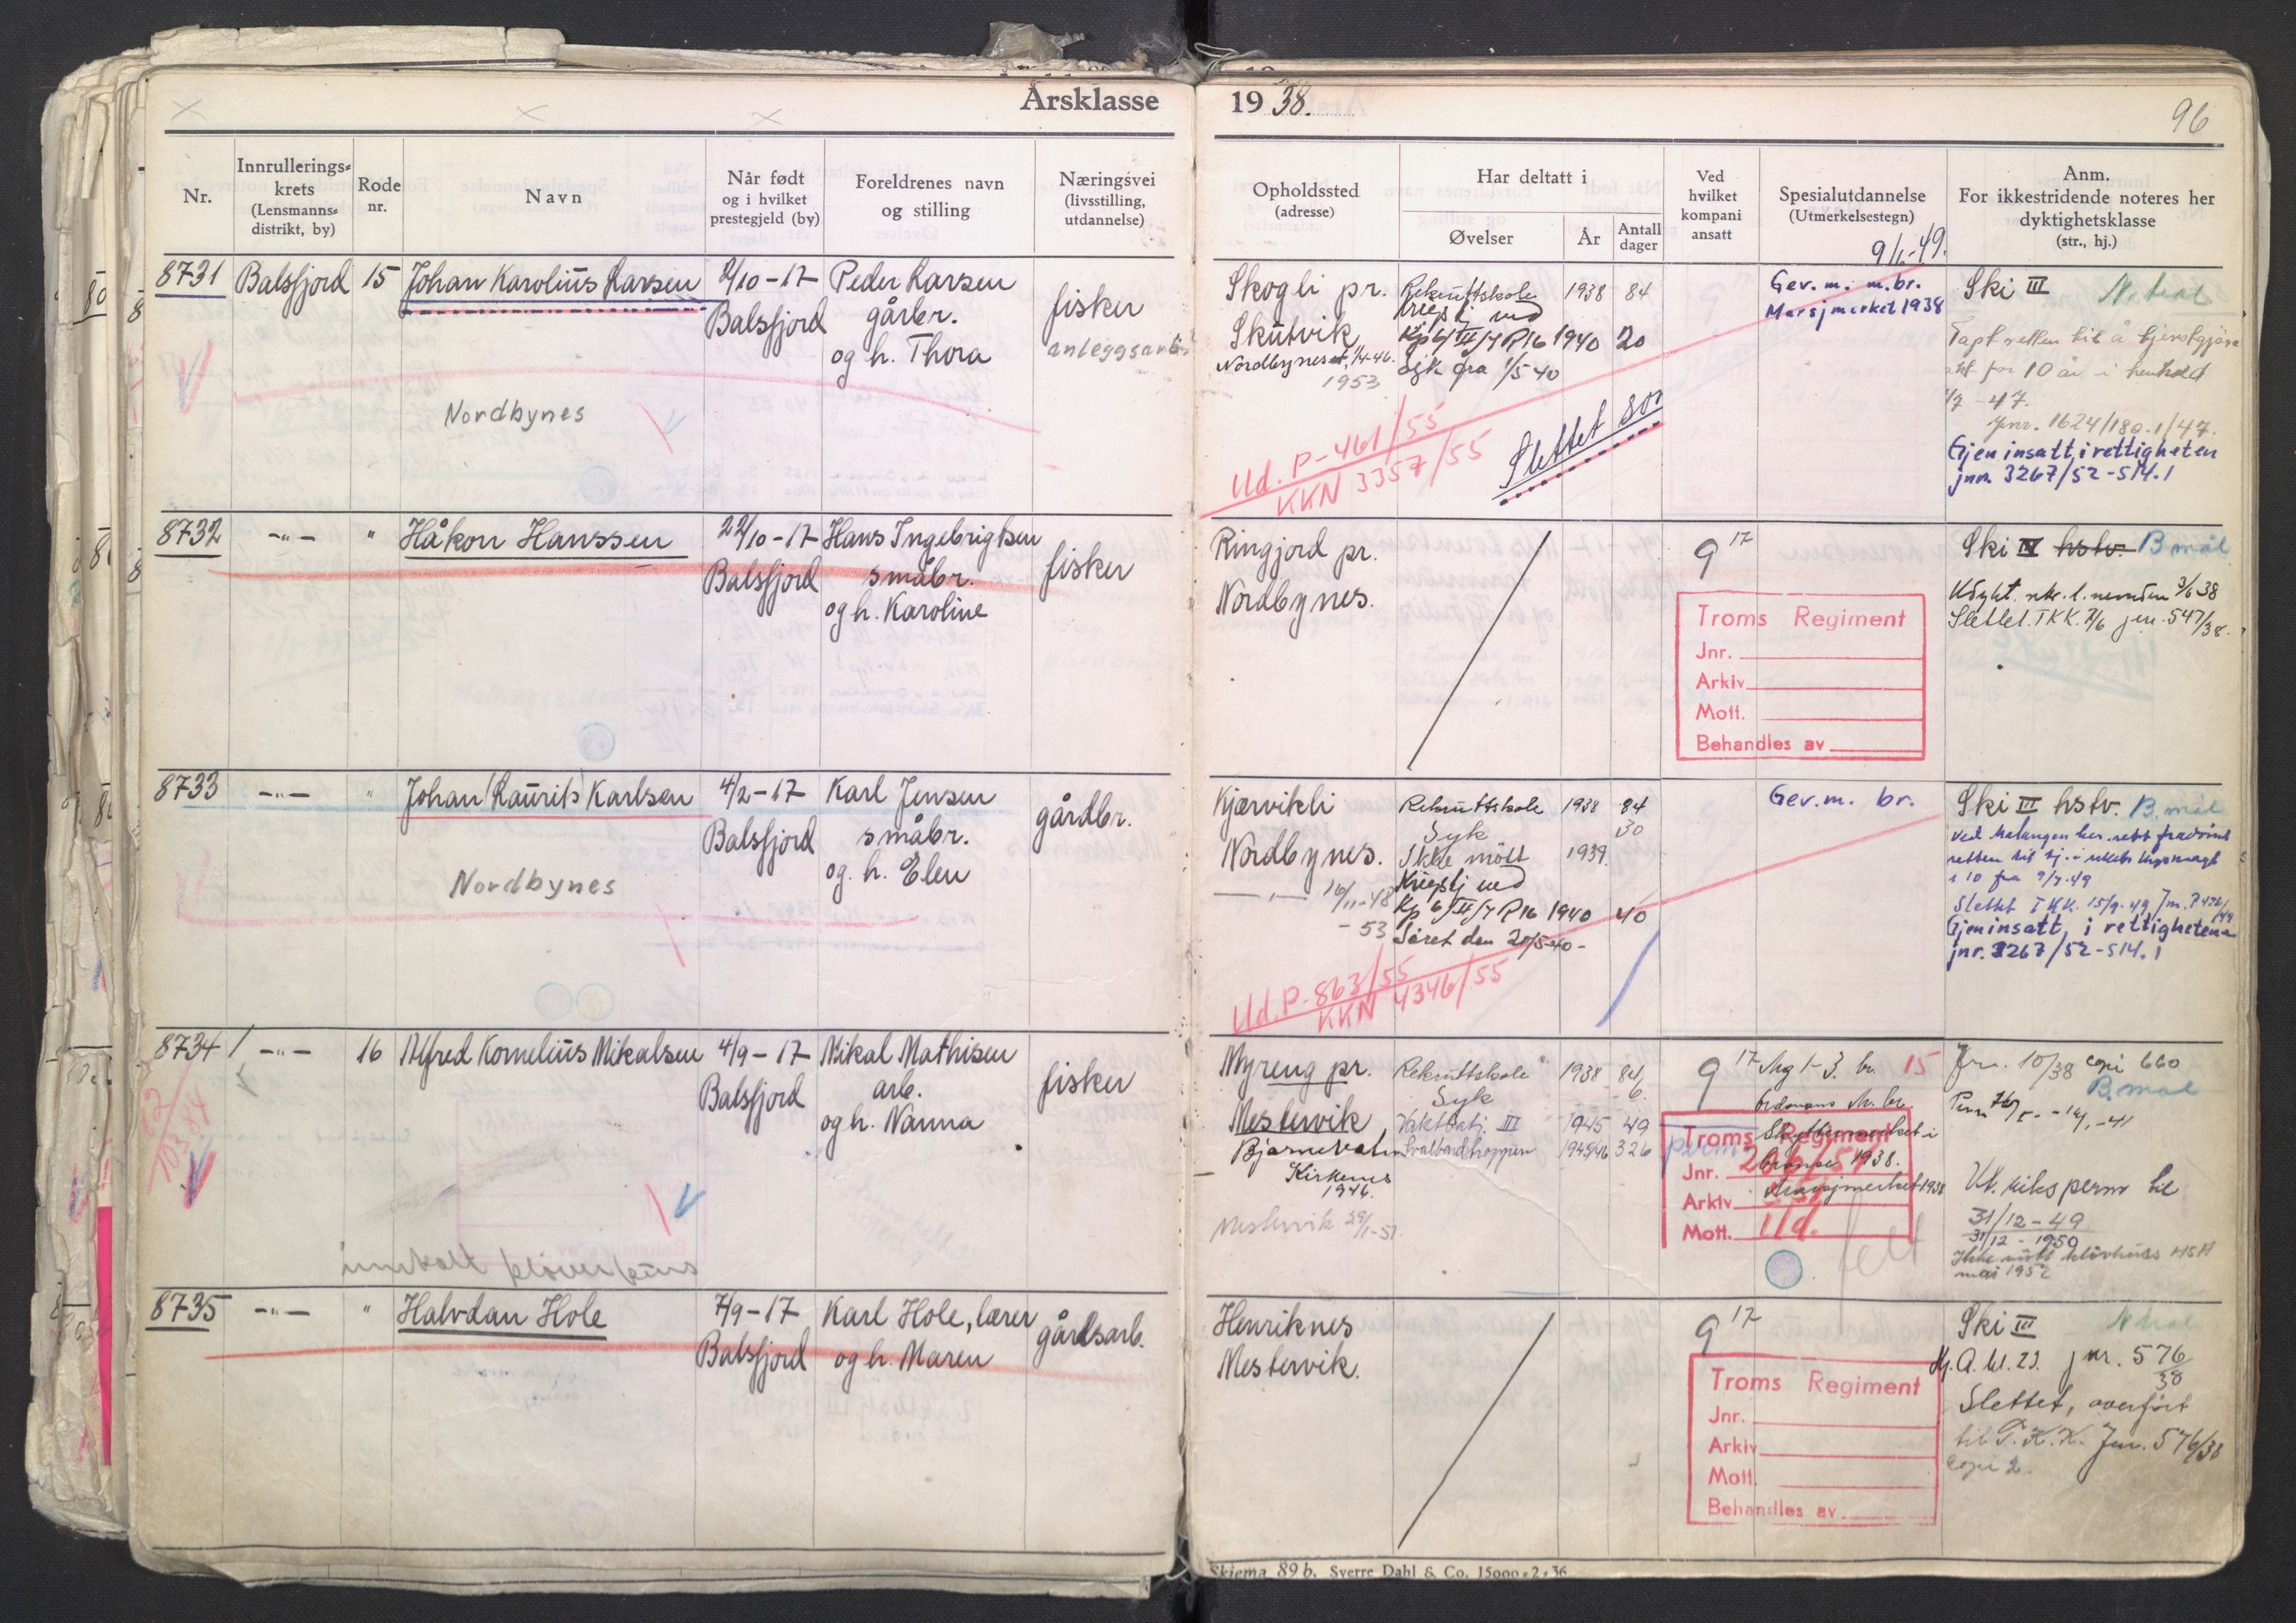 Årsklasse 1938.
96
Nr.
Innrulleringskrets
(Lensmannsdistrikt, by)
Rode nr.
Navn
Når født
og i hvilket
prestegjeld (by)
Foreldrenes navn
og stilling
Næringsvei
(livsstilling,
utdannelse)
Opholdssted
(adresse)
Har deltatt i
Øvelser
År
Antall dager
Ved
hvilket
kompani
ansatt
Spesialutdannelse
(Utmerkelsestegn)
Anm.
For ikkestridende noteres her
dyktighetsklasse
(str., hj.)
8731 Balsfjord 15 Johan Karolius Larsen
2/10-17
Balsfjord
Peder Larsen
gårbr.
og h. Thora
fisker
Nordbynes
Skogli pr.
Skutvik
1953
Rekruttskole 1938 84
Kp 6/II/IR16 1940 20
Syk fra 1/5 40
Ud. P-461/55
KKN 3357/55
Slettet
Gev. m. m. br.
Marsjmerket 1938
Ski III
Tapt retten til å tjenstgjøre
for 10 år i henhold
jnr. 1624/180.1/47.
Gjeninsatt i rettigheten
jnr. 3267/52-514.1
8732 -"- " Håkon Hanssen
22/10-17
Balsfjord
Hans Ingebrigtsen
småbr.
og h. Karoline
fisker
Ringjord pr.
Nordbynes.
9 17
Troms Regiment
Jnr.
Arkiv
Mott.
Behandles av
Ski IV hstv. B mål
Udykt.
Slettet. TKK. jnr. 547/38.
8733 -"- " Johan Laurits Karlsen
4/2-17
Balsfjord
Karl Jensen
småbr.
og h. Elen
gårdbr.
Nordbynes
Kjærvikli
Nordbynes.
-"- 16/11-48
-53
Rekruttskole 1938 84
Syk 30
Ikke møtt 1939.
Krigstj ved
Kp 6/II/IR16 1940 40
Såret den 20/5-40-
Ud. P-863/55
KKN 4346/55
Gev. m. br.
Ski III hstv. B. mål
ved Malangen her. rett fradømt
retten til tj. i rikets krigsmagt
i 10 fra 9/7-49
Slettet TKK. 15/9-49
Gjeninsatt i rettighetene
jnr. 3267/52-514.1
8734 -"- 16 Alfred Kornelius Mikalsen
4/9-17
Balsfjord
Mikal Mathisen
arb.
og h. Nanna
fisker
Myreng pr.
Mestervik
Bjørnevatn
Kirkenes
1946.
Mestervik 29/1-51.
Rekruttskole 1938 84
Syk 6
Vaktbatj. III 1945 49
Svalbardtroppen 1945/46 326
9 17 Mg 1-3. br. 15
Ordonans
Skyttermerket i
bronse 1938.
Marsjmerket 1938
Troms Regiment
Jnr.
Arkiv
Mott. Ud.
Jnr. 10/38 copi 660
B mål
Ut. riks perm til
31/12-49
31/12-1950
mai 1952
8735 -"- " Halvdan Hole
7/9-17
Balsfjord
Karl Hole, lærer
og h. Maren
gårdsarb.
Henriknes
Mestervik.
9 17
Troms Regiment
Jnr.
Arkiv
Mott.
Behandles av
Ski III
jnr. 576/38
Slettet, overført
til T.K.K. Jnr. 576/38
Copi 2.
Skjema 89 b. Sverre Dahl & Co. 15000.2.36